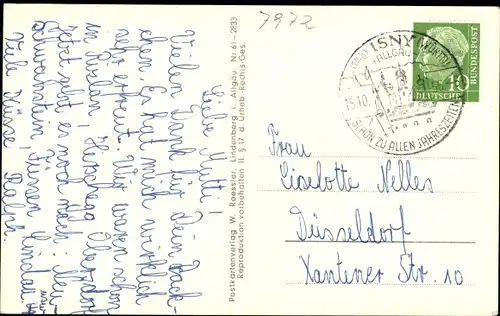 7972
Liebe Mutti!
Vielen Dank für Dein Päck-
chen. Es hat mich wirklich
sehr erfreut. Wir waren schon
in Oberstdorf
jetzt geht es noch nach: Neu-
schwanstein, Füssen, Lindau,
Viele Küsse, Ralph.
Postkartenverlag W. Roessler, Lindenberg i. Allgäu. Nr. 61-2833
Reproduktion vorbehalten lt. § 17 d. Urheb.-Rechts-Ges.
ISNY (WÜRTT)
ALLGÄU
15.10.
SCHÖN ZU ALLEN JAHRESZEITEN
10
DEUTSCHE
BUNDESPOST
Frau
Liselotte Nelles
Düsseldorf
Xantener Str. 10